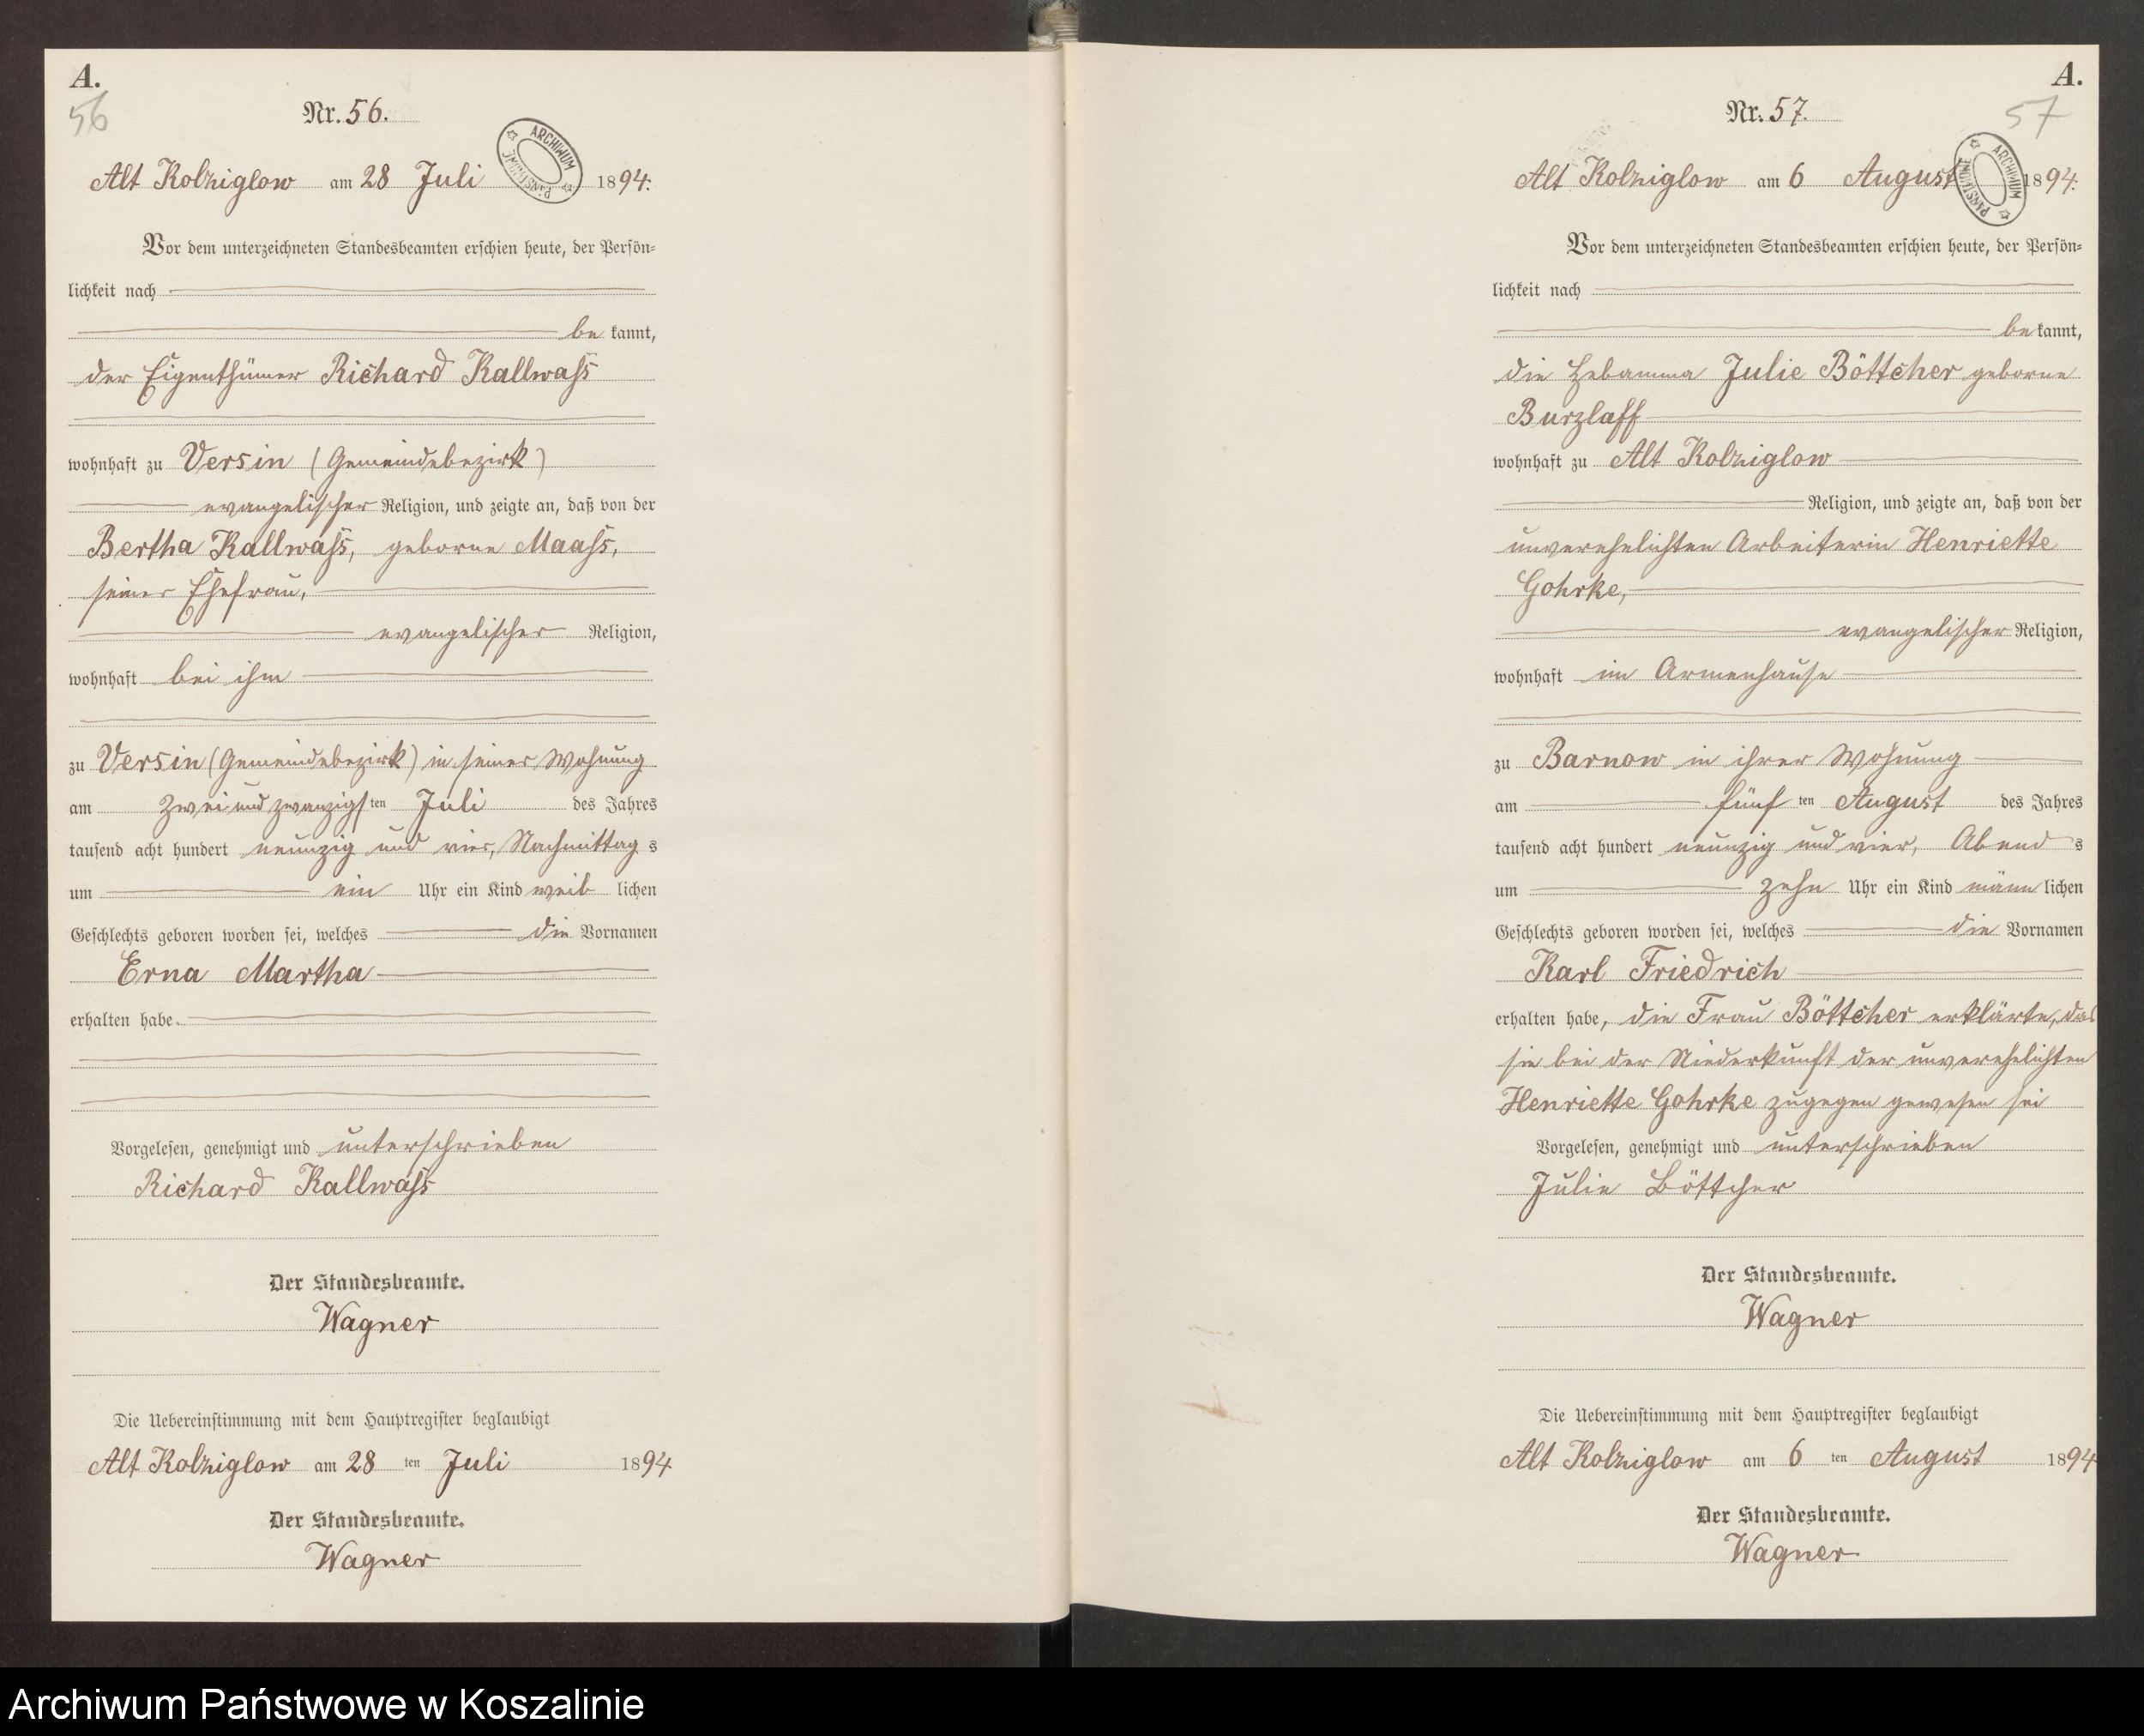 A.
56
Nr. 56.
ARCHIWUM PAŃSTWOWE
Alt Kolziglow am 28 Juli 1894.
Vor dem unterzeichneten Standesbeamten erschien heute, der Persön=
lichkeit nach
be kannt,
der Eigenthümer Richard Kallwass
wohnhaft zu Versin (Gemeindebezirk)
evangelischer Religion, und zeigte an, daß von der
Bertha Kallwass, geborne Maass,
seiner Ehefrau,
evangelischer Religion,
wohnhaft bei ihm
zu Versin (Gemeindebezirk) in seiner Wohnung
am zwei und zwanzigsten Juli des Jahres
tausend acht hundert neunzig und vier, Nachmittags
um ein Uhr ein Kind weiblichen
Geschlechts geboren worden sei, welches die Vornamen
Erna Martha
erhalten habe.
Vorgelesen, genehmigt und unterschrieben
Richard Kallwass
Der Standesbeamte.
Wagner
Die Uebereinstimmung mit dem Hauptregister beglaubigt
Alt Kolziglow am 28 ten Juli 1894
Der Standesbeamte.
Wagner
A.
57
Nr. 57.
ARCHIWUM PAŃSTWOWE
Alt Kolziglow am 6 August 1894.
Vor dem unterzeichneten Standesbeamten erschien heute, der Persön=
lichkeit nach
be kannt,
die Hebamme Julie Böttcher geborne
Burzlaff
wohnhaft zu Alt Kolziglow
Religion, und zeigte an, daß von der
unverehelichten Arbeiterin Henriette
Gohrke,
evangelischer Religion,
wohnhaft im Armenhause
zu Barnow in ihrer Wohnung
am fünf ten August des Jahres
tausend acht hundert neunzig und vier, Abends
um zehn Uhr ein Kind männlichen
Geschlechts geboren worden sei, welches die Vornamen
Karl Friedrich
erhalten habe, die Frau Böttcher erklärte, das
sie bei der Niederkunft der unverehelichten
Henriette Gohrke zugegen gewesen sei
Vorgelesen, genehmigt und unterschrieben
Julie Böttcher
Der Standesbeamte.
Wagner
Die Uebereinstimmung mit dem Hauptregister beglaubigt
Alt Kolziglow am 6 ten August 1894
Der Standesbeamte.
Wagner
Archiwum Państwowe w Koszalinie